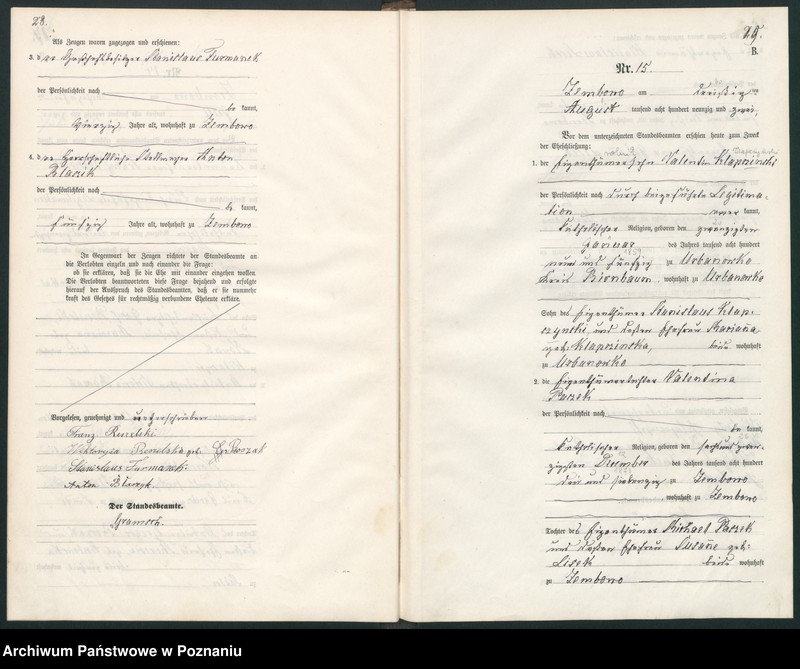 28.
Als Zeugen waren zugezogen und erschienen:
3. der Wirthschaftsbesitzer Stanislaus Furmanek
der Persönlichkeit nach
be kannt,
vierzig Jahre alt, wohnhaft zu Zembowo
4. der Herrschaftliche Stellmacher Anton
der Persönlichkeit nach
be kannt,
fünfzig Jahre alt, wohnhaft zu Zembowo
In Gegenwart der Zeugen richtete der Standesbeamte an
die Verlobten einzeln und nach einander die Frage:
ob sie erklären, daß sie die Ehe mit einander eingehen wollen.
Die Verlobten beantworteten diese Frage bejahend und erfolgte
hierauf der Ausspruch des Standesbeamten, daß er sie nunmehr
kraft des Gesetzes für rechtmäßig verbundene Eheleute erkläre.
Vorgelesen, genehmigt und unterschrieben
Franz
geb.
Stanislaus Furmanek
Anton
Der Standesbeamte.
29.
B.
Nr. 15
Zembowo am dreißig ten
August tausend acht hundert neunzig und zwei,
Vor dem unterzeichneten Standesbeamten erschien heute zum Zweck
der Eheschließung:
1. der Eigenthümersohn Valentin Klapczinski
der Persönlichkeit nach durch beigeführte Legitima-
tion aner kannt,
katholischer Religion, geboren den zwanzigsten
Januar des Jahres tausend acht hundert
neun und fünfzig zu Urbanowko
Kreis Birnbaum, wohnhaft zu Urbanowko
Sohn des Eigenthümers Stanislaus Klap-
czynski, und dessen Ehefrau Marianna
geb. Klapczinska, beide wohnhaft
zu Urbanowko
2. die Eigenthümertochter Valentina
Paszek
der Persönlichkeit nach
be kannt,
katholischer Religion, geboren den sechsundzwan-
zigsten Dezember des Jahres tausend acht hundert
drei und siebenzig zu Zembowo
, wohnhaft zu Zembowo
Tochter des Eigenthümers Michael Paszek
und dessen Ehefrau Susanne geb:
Lisek beide wohnhaft
zu Zembowo
Archiwum Państwowe w Poznaniu